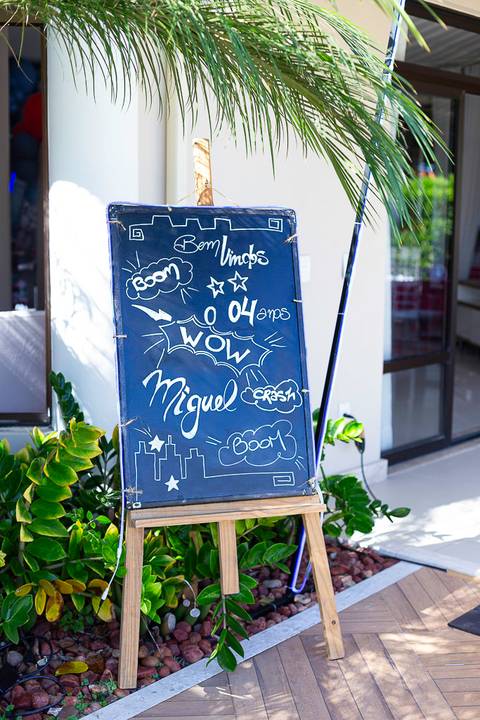 Bem Vindos
BOOM
0 04 anos
WOW
Miguel
CRASH
BOOM